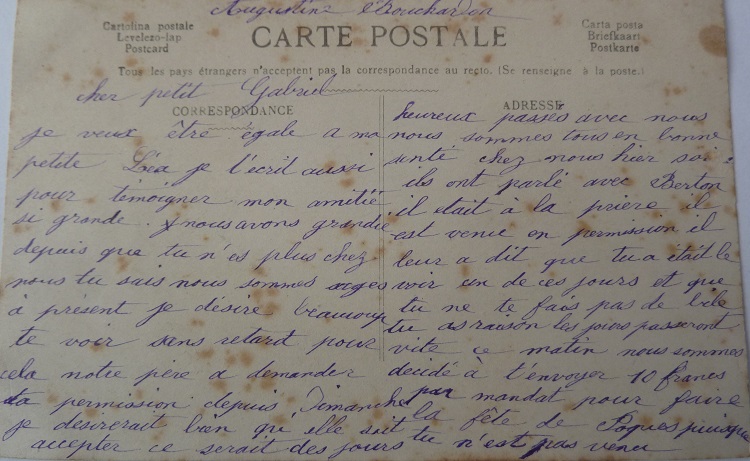 Augustine Bouchardon
Cartolina postale
Levelezo-lap
Postcard
CARTE POSTALE
Carta posta
Briefkaart
Postkarte
Tous les pays étrangers n'acceptent pas la correspondance au recto. (Se renseigne à la poste.)
cher petit Gabriel
CORRESPONDANCE
je veux être égale a ma
petite Léa je t'écril aussi
pour témoigner mon amitié
si grande. nous avons grandie
depuis que tu n'es plus chez
nous tu sais nous sommes sages
à présent je désire beaucoup
te voir sens retard pour
cela notre père a demander
ta permission depuis Dimanche
je desirerait bien qu'elle soit
accepter ce serait des jours
ADRESSE
heureux passés avec nous
nous sommes tous en bonne
senté chez nous hier soir
ils ont parlé avec Berton
il etait à la prière il
est venue en permission il
leur a dit que tu a était le
voir un de ces jours et que
tu ne te fais pas de bile
tu as raison les jours passeront
vite ce matin nous sommes
decidé à t'envoyer 10 francs
par mandat pour faire
la fête de Paques puisque
tu n'est pas venu